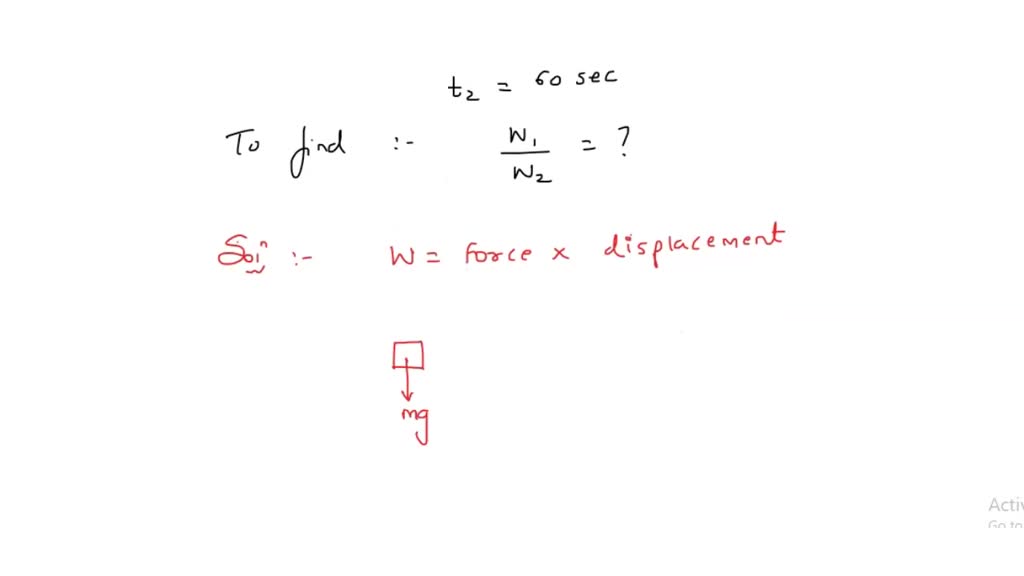 t₂ = 60 sec
To find :- W₁/W₂ = ?
Solⁿ :- W = Force × displacement
mg
Activ
Go to